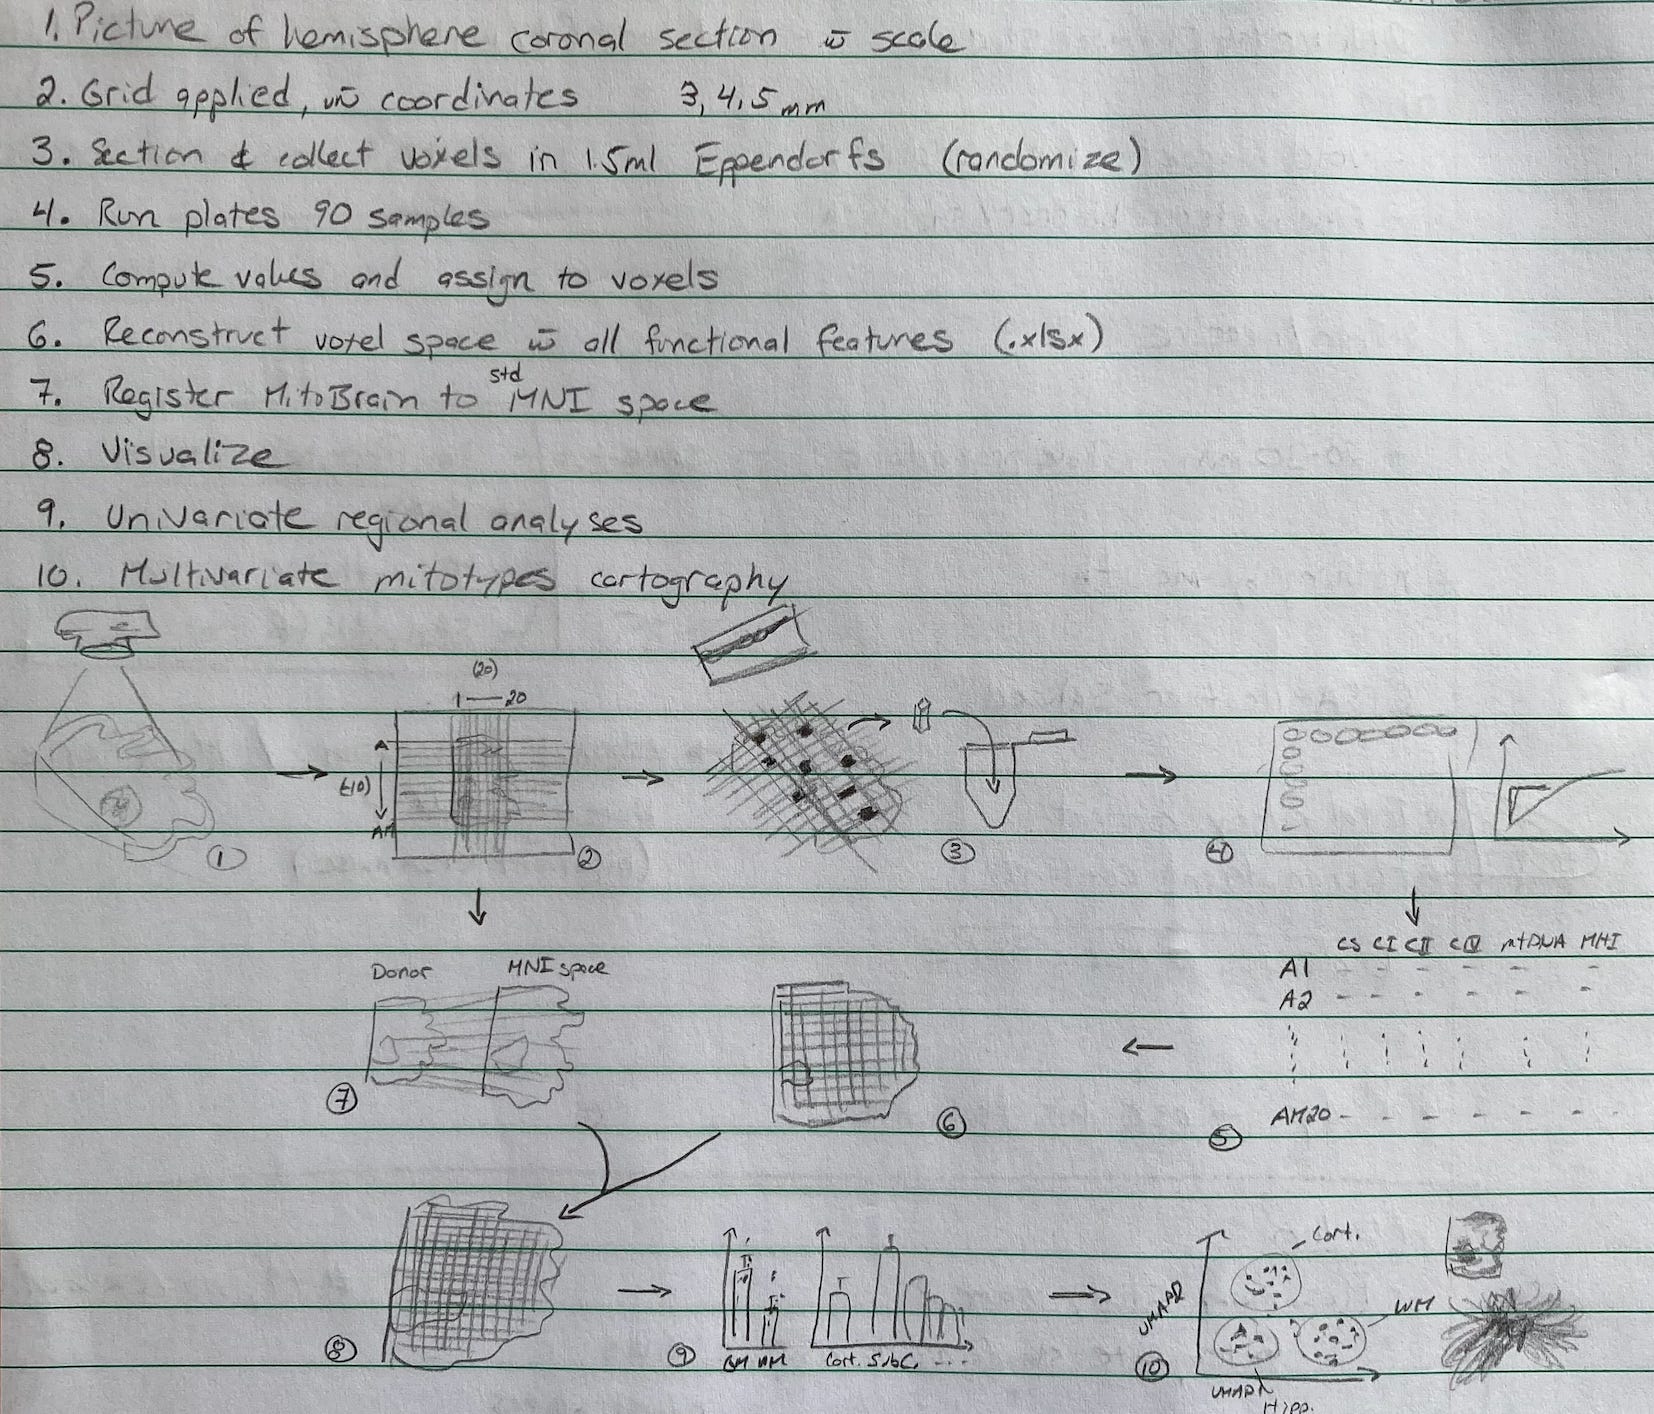 1. Picture of hemisphere coronal section w̄ scale
2. Grid applied, w̄ coordinates 3, 4, 5 mm
3. Section & collect voxels in 1.5ml Eppendorfs (randomize)
4. Run plates 90 samples
5. Compute values and assign to voxels
6. Reconstruct voxel space w̄ all functional features (.xlsx)
7. Register MitoBrain to std MNI space
8. Visualize
9. Univariate regional analyses
10. Multivariate mitotypes cartography
(20)
1—20
A
(40)
AM
1
2
3
4
CS CI CII CIV mtDNA MHI
A1
A2
AM20
5
Donor MNI space
7
6
8
GM WM
Cort. SubC. ...
9
Cort.
WM
UMAP2
UMAP1
Hipp.
10